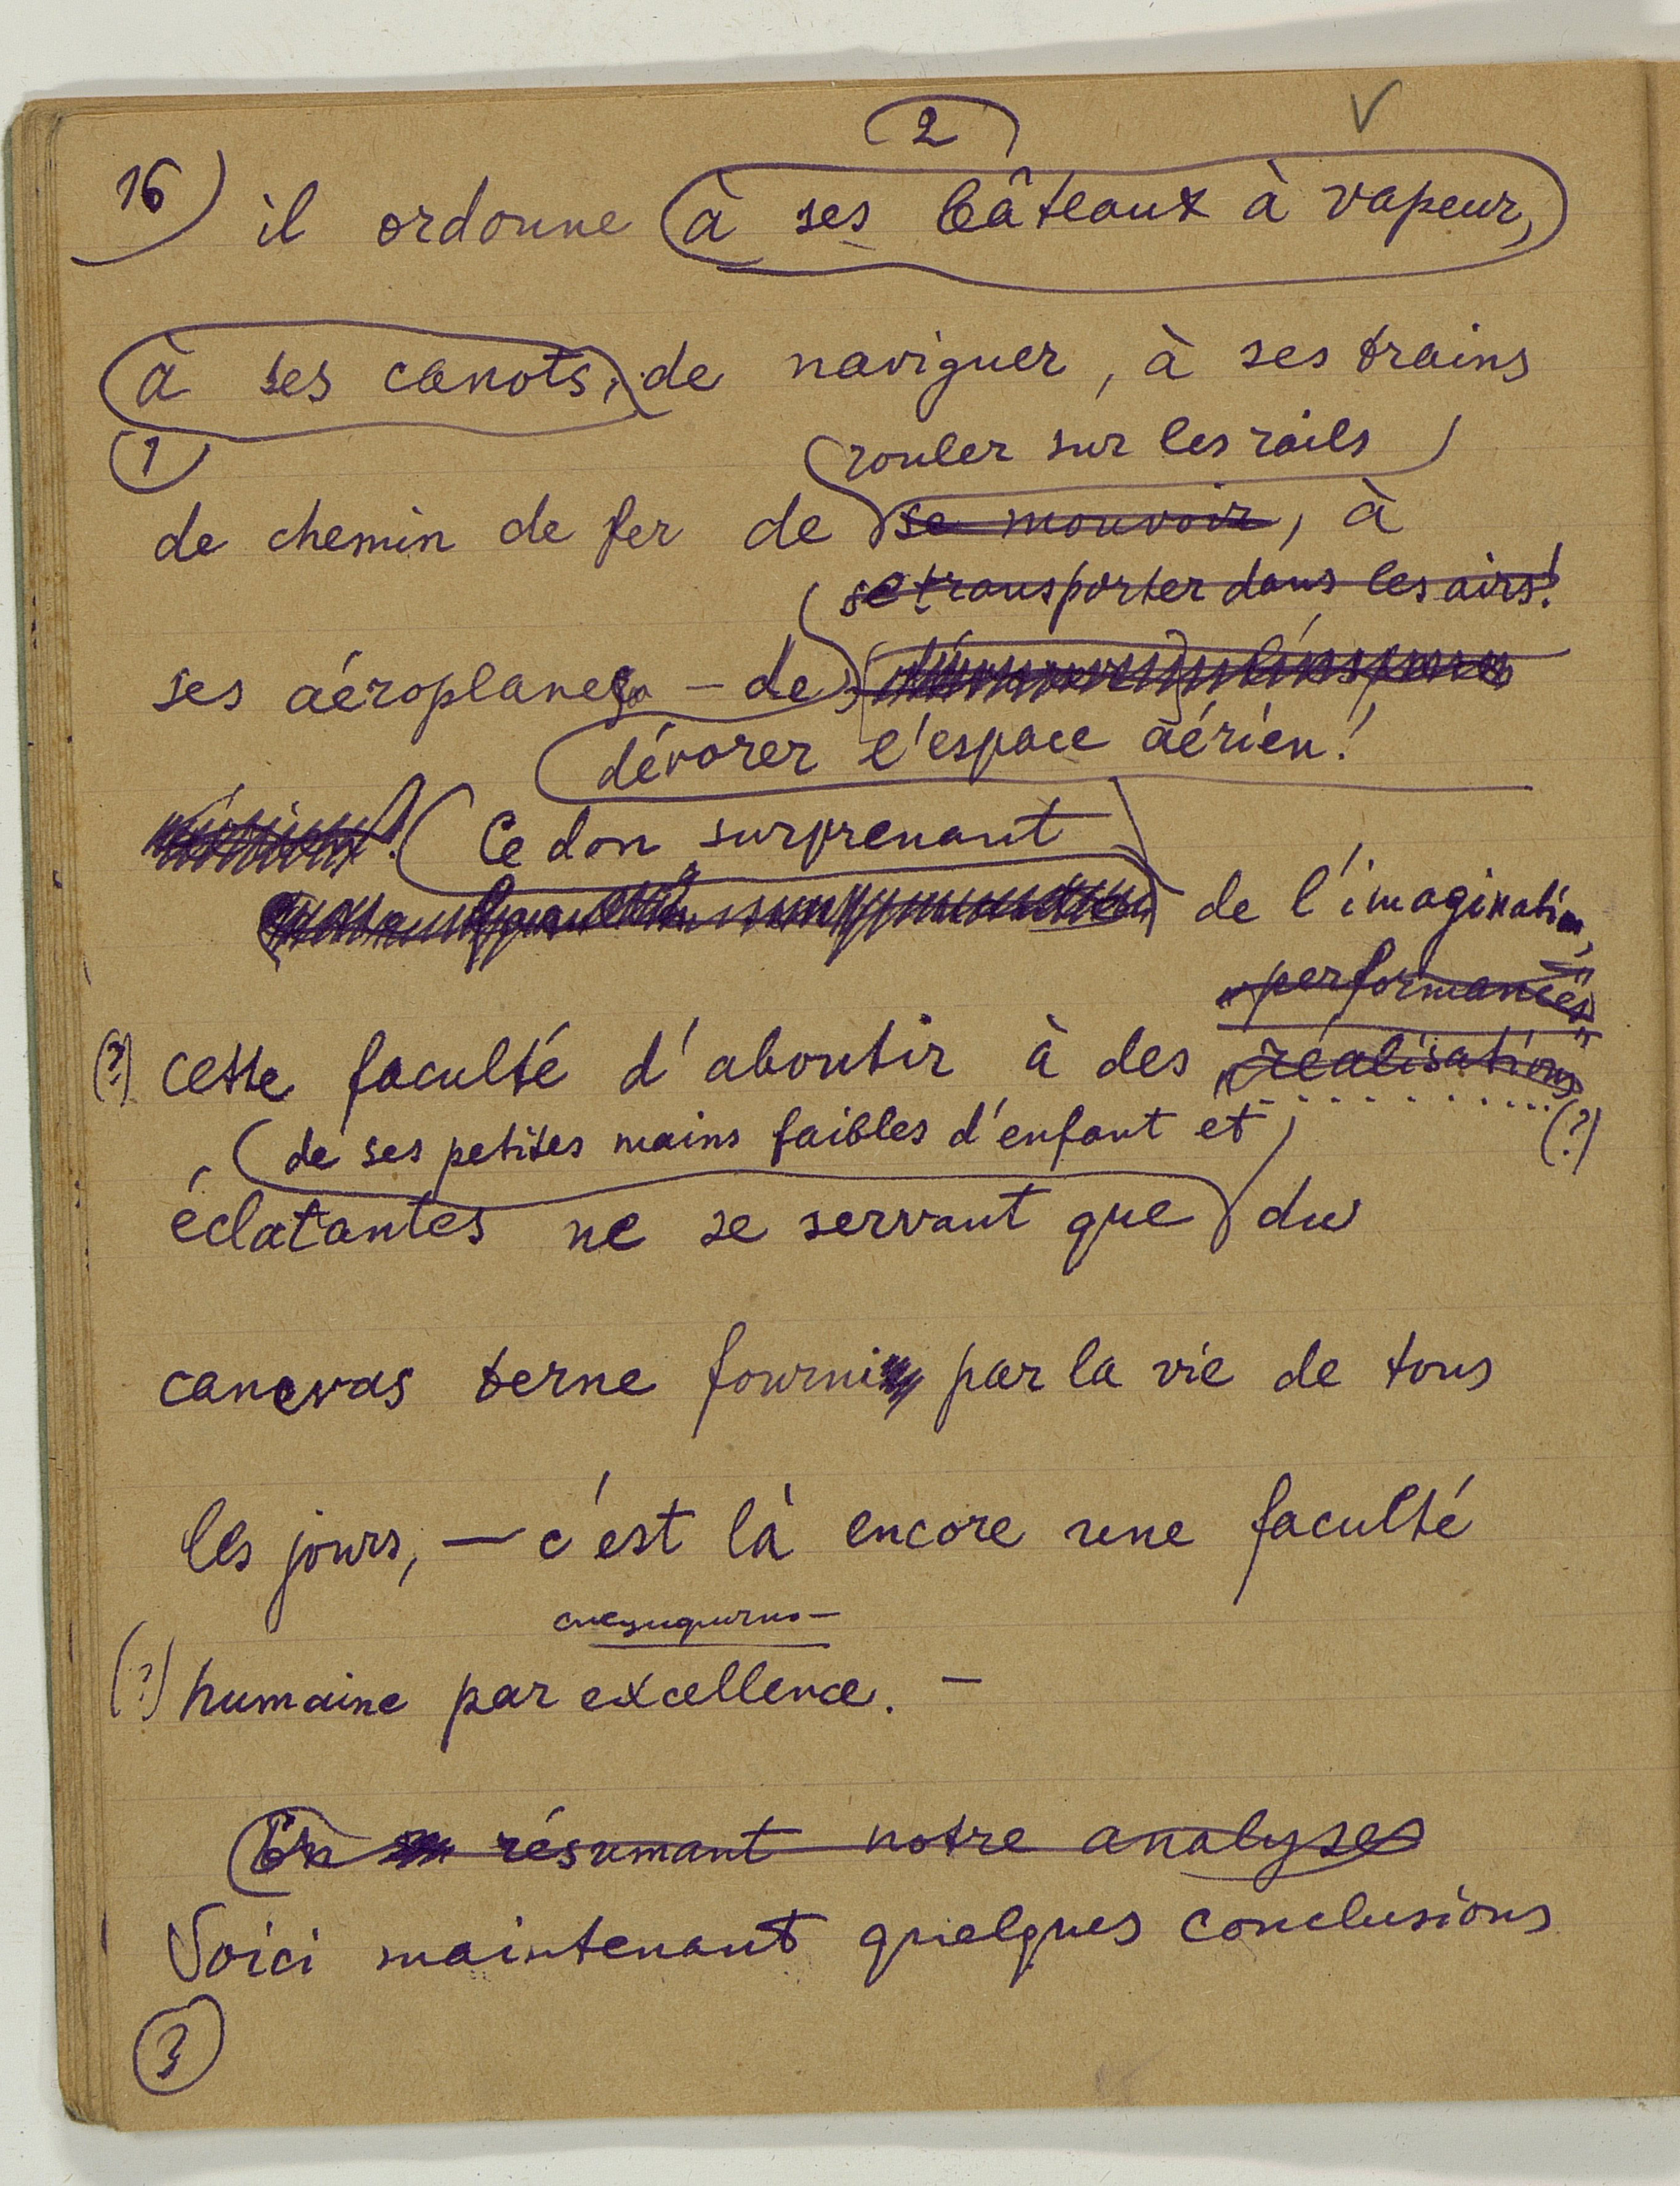 2 V
16) il ordonne à ses bâteaux à vapeur,
à ses canots, de naviguer, à ses trains
1 rouler sur les rails
de chemin de fer de se mouvoir, à
se transporter dans les airs!
ses aéroplanes – de
dévorer l'espace aérien!
Ce don surprenant
de l'imagination,
"performances"
(?) cette faculté d'aboutir à des "réalisations"
de ses petites mains faibles d'enfant et (?)
éclatantes ne se servant que du
canevas terne fourni par la vie de tous
les jours, – c'est là encore une faculté
(?) humaine par excellence. –
En résumant notre analyse
Voici maintenant quelques conclusions
3